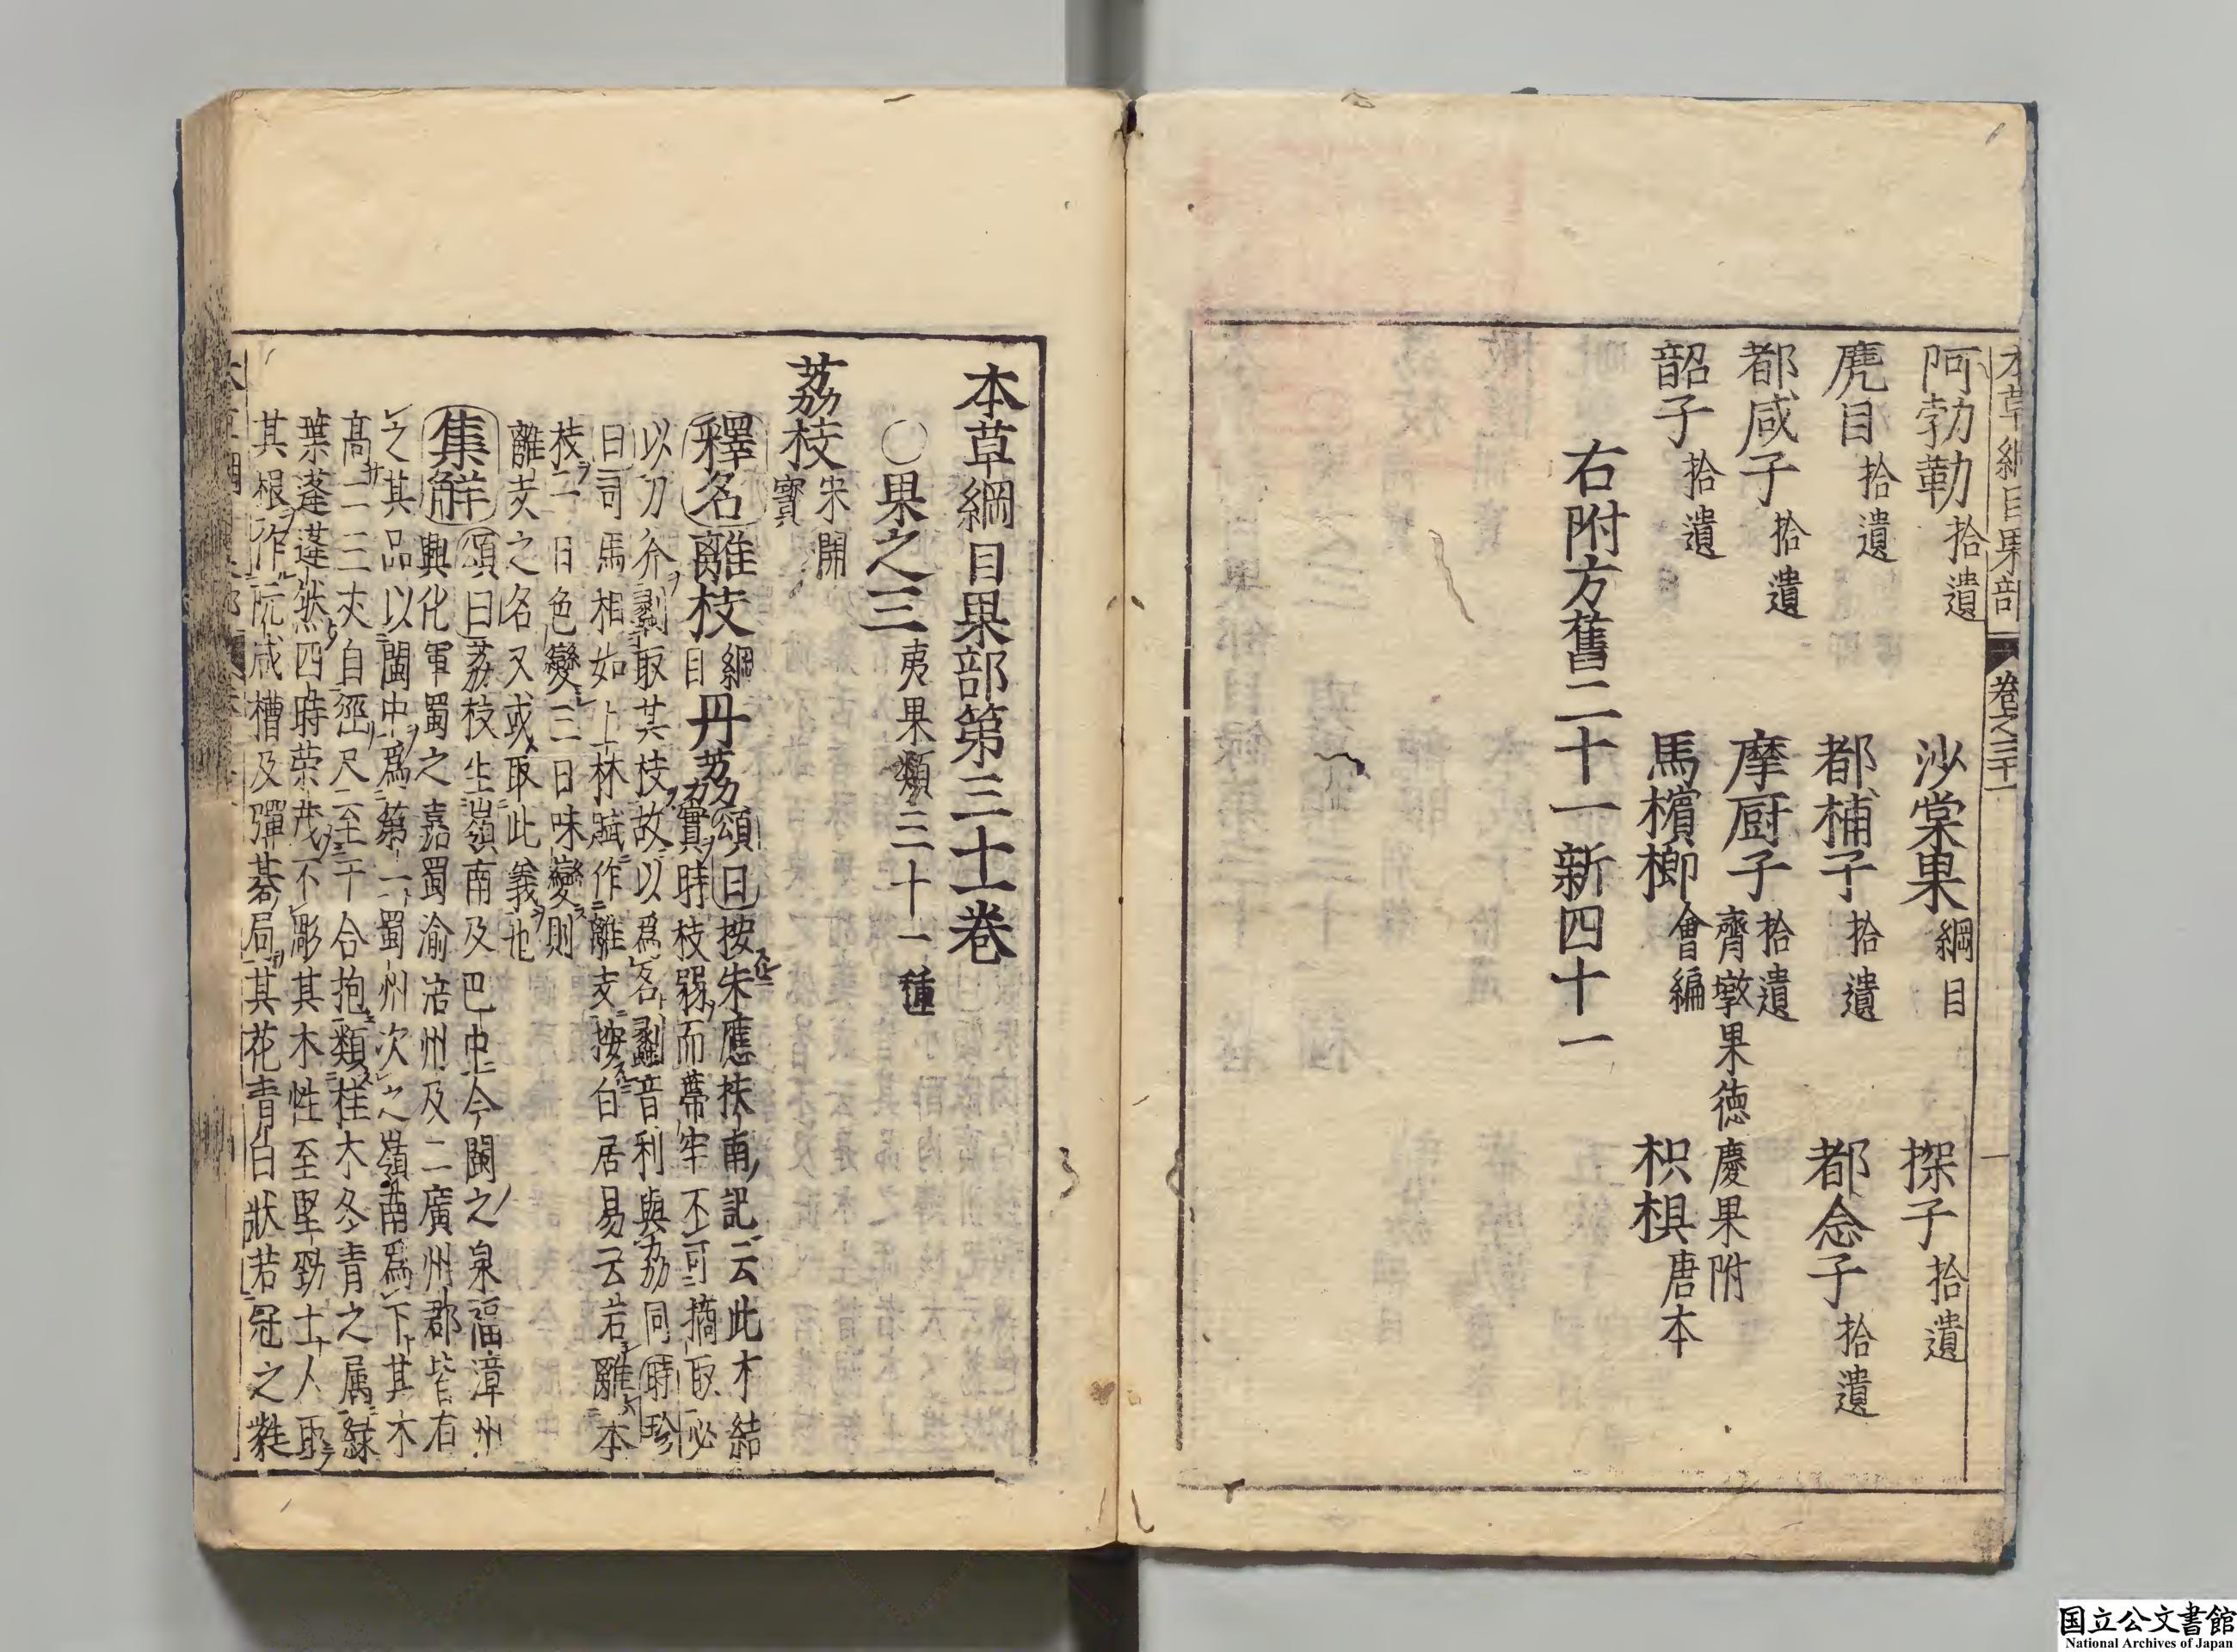 本草綱目果部 卷之三十一 一
阿勃勒 拾遺 沙棠果 綱目 探子 拾遺
麂目 拾遺 都桷子 拾遺 都念子 拾遺
都咸子 拾遺 摩厨子 拾遺 齊墩果德慶果附
韶子 拾遺 馬檳榔 會編 枳椇 唐本
右附方舊二十一新四十一
本草綱目果部第三十一卷
○果之三 夷果類三十一種
荔枝 宋開寶
釋名 離枝 綱目 丹荔 頌曰按朱應扶南記云此木結
實時枝弱而蔕牢不可摘取必
以刀斧劙取其枝故以爲名劙音利與荔同時珍
曰司馬相如上林賦作離支按白居易云若離本
枝一日色變三日味變則
離支之名又或取此義也
集解 頌曰荔枝生嶺南及巴中今閩之泉福漳州
興化軍蜀之嘉蜀渝涪州及二廣州郡皆有
之其品以閩中爲第一蜀州次之嶺南爲下其木
高二三丈自徑尺至于合抱類桂木冬青之属緑
葉蓬蓬然四時荣茂不彫其木性至堅勁土人取
其根作阮咸槽及彈棊局其花青白狀若冠之蕤
国立公文書館
National Archives of Japan